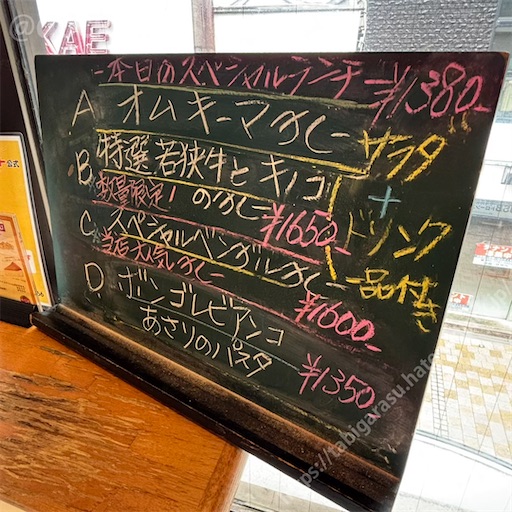 @
KAE
公式
本日のスペシャルランチ ¥1380-
A オムキーマカレー
B 特選若狭牛とキノコ
数量限定! のカレー ¥1650-
C スペシャルベンガルカレー
当店人気カレー ¥1600-
D ボンゴレビアンコ
あさりのパスタ ¥1350
サラダ
+
ドリンク
一品付き
https://tabigarasu.hate